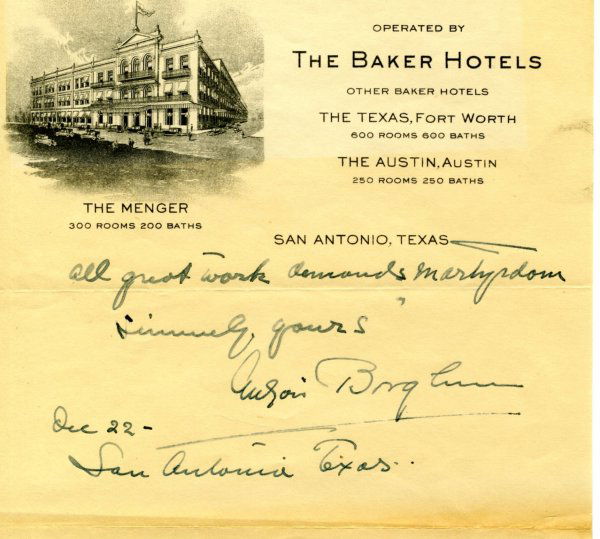 OPERATED BY
THE BAKER HOTELS
OTHER BAKER HOTELS
THE TEXAS, FORT WORTH
600 ROOMS 600 BATHS
THE AUSTIN, AUSTIN
250 ROOMS 250 BATHS
THE MENGER
300 ROOMS 200 BATHS
SAN ANTONIO, TEXAS
All great work demands martyrdom
"
Sincerely yours
Gutzon Borglum
Dec 22-
San Antonio Texas..